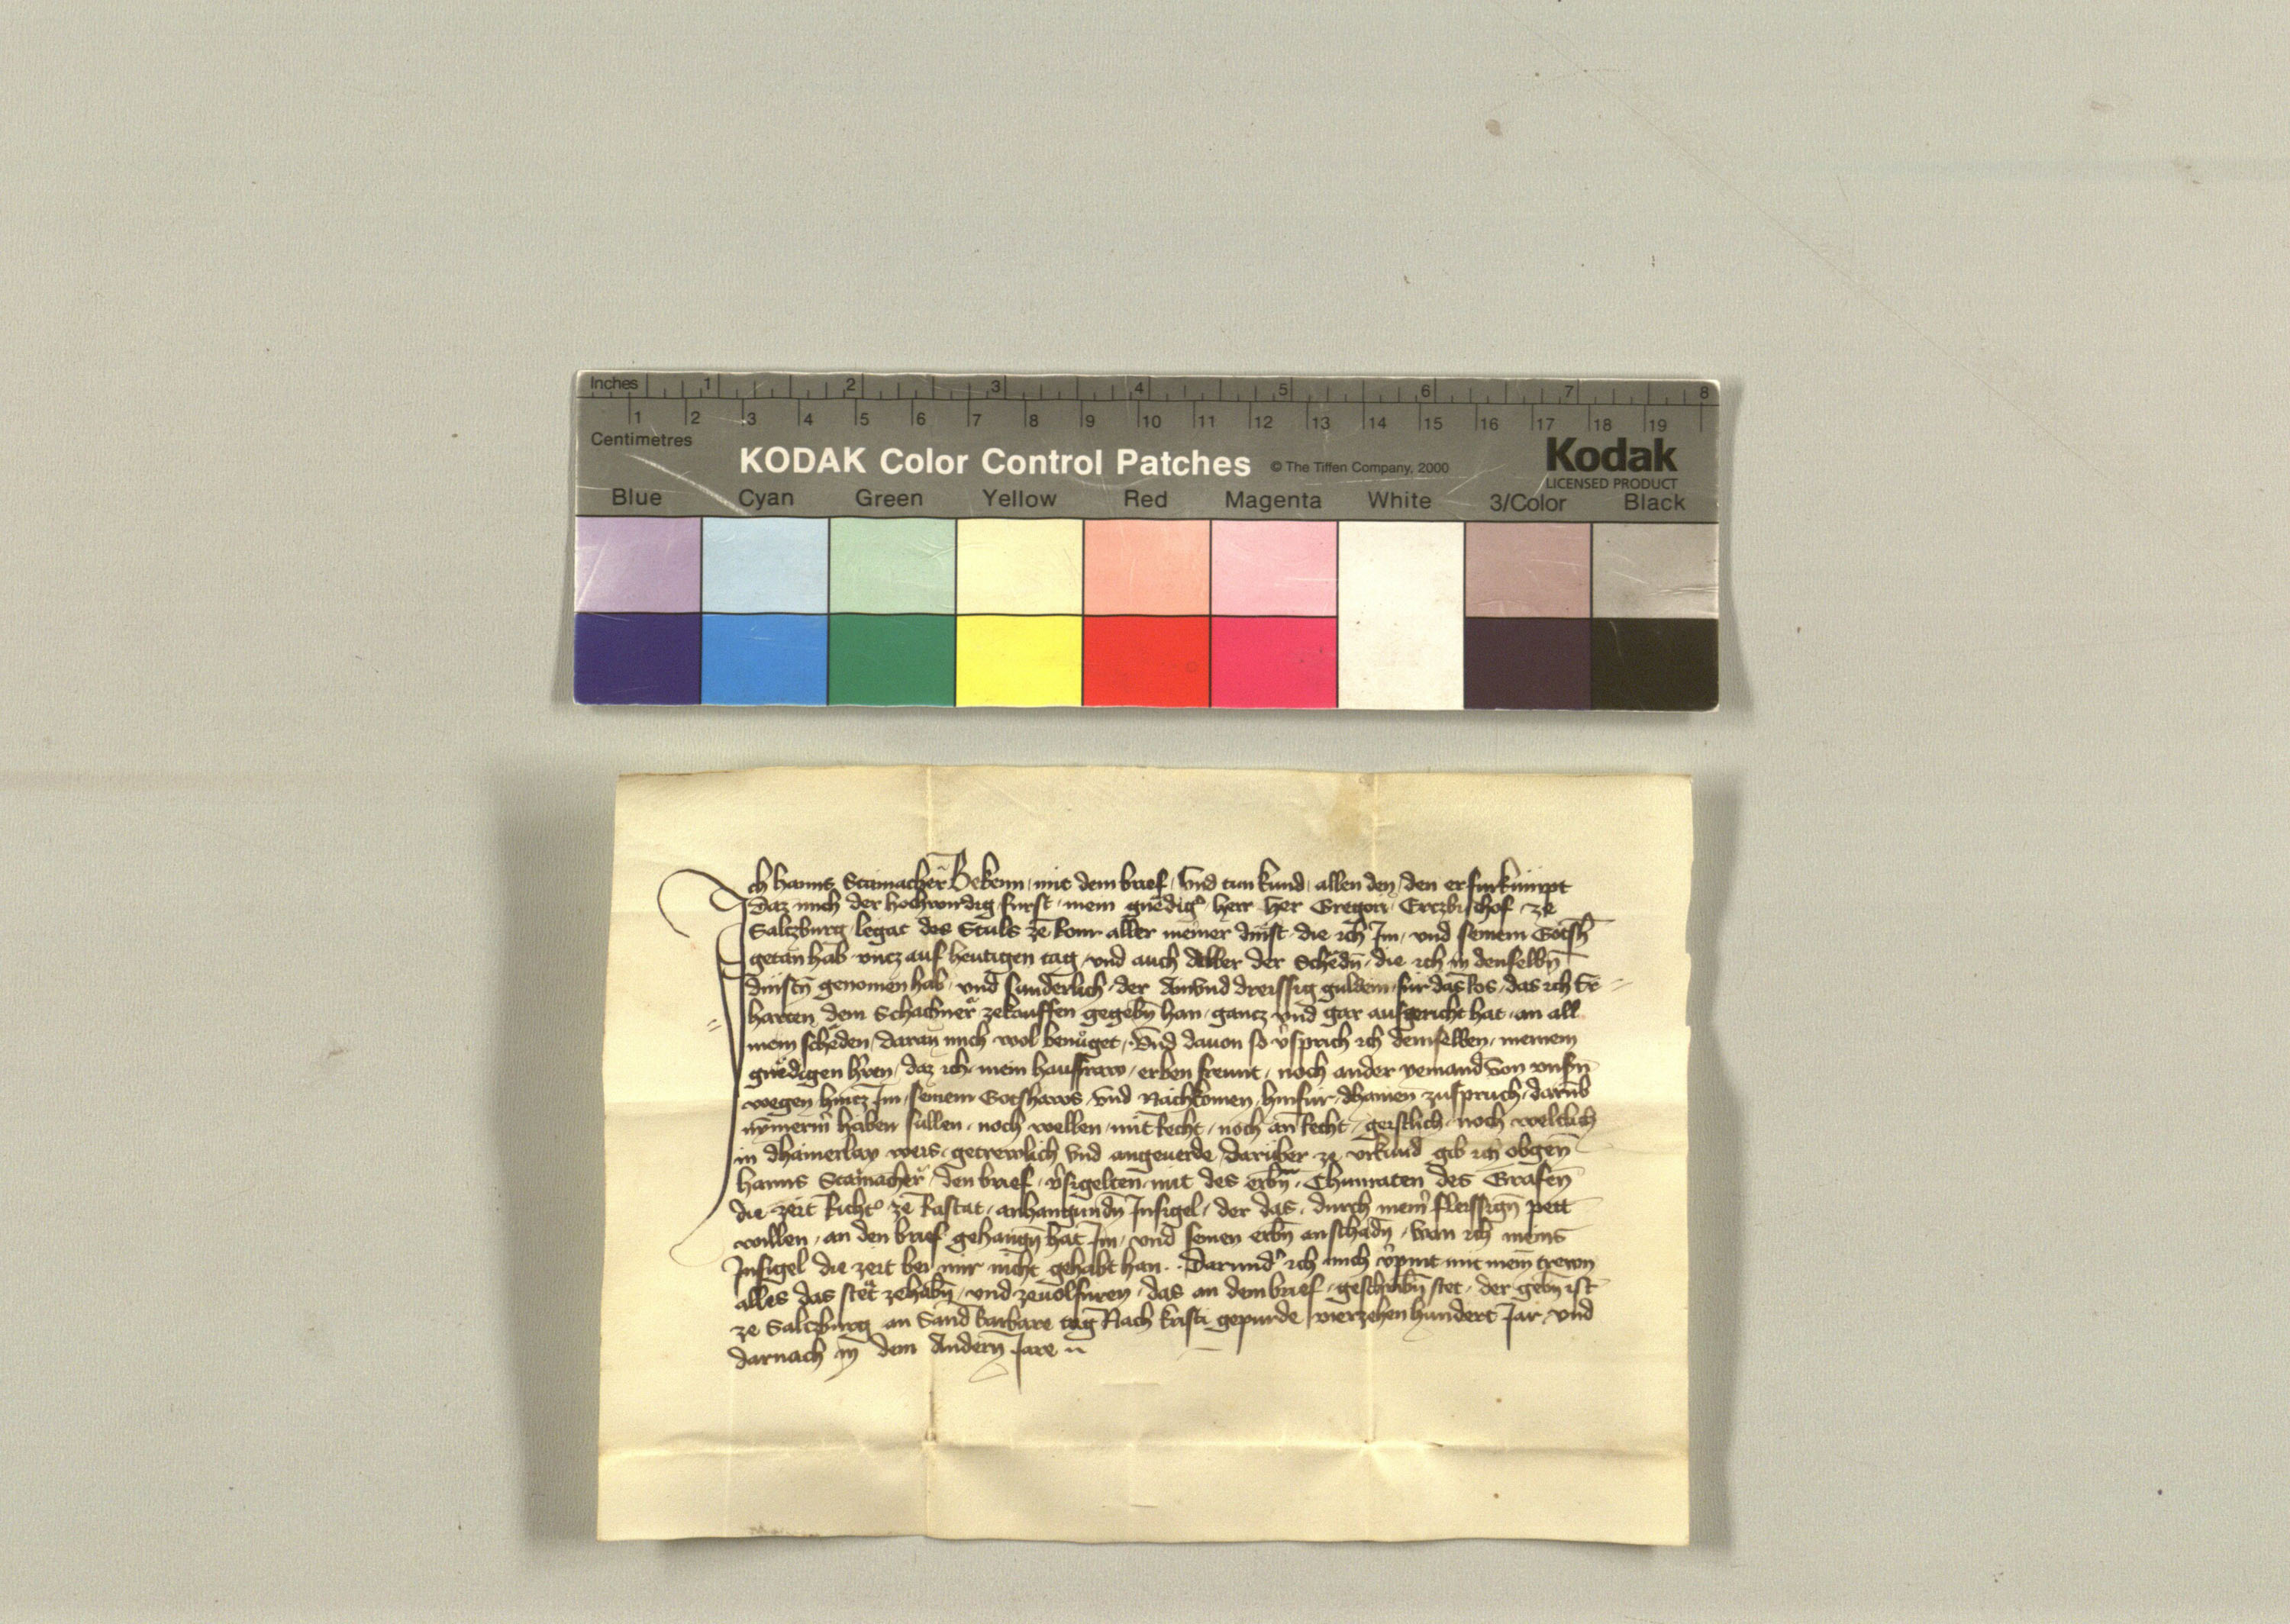 Inches 1 2 3 4 5 6 7 8
1 2 3 4 5 6 7 8 9 10 11 12 13 14 15 16 17 18 19
Centimetres
KODAK Color Control Patches © The Tiffen Company, 2000 Kodak
LICENSED PRODUCT
Blue Cyan Green Yellow Red Magenta White 3/Color Black
Ich hanns Stainacher Bekenn mit dem brief vnd tun kund allen den den er furkumpt
Daz mich der hochwirdig furst mein gnedig herr her Gregori Erczbischof ze
Salczburg legat des Stuls ze Rom aller meiner dinst die ich Im und seinem Gotsh
getan hab vncz auf heutigen tag vnd auch aller der Schedn die ich in denselbn
dinstn genomen hab und sunderlich der dreissig guldein fur das Ros das ich Er
harten dem Schachner zekauffen gegebn han gancz vnd gar ausgericht hat an all
mein scheden daran mich wol benuget Vnd dauon so vsprich ich demselben meinem
gnedigen hren daz ich mein hausfraw erben freunt noch ander yemand von vnsn
wegen hincz Im seinem Gotshaws vnd Nachkomen hinfur dhainen zuspruch darub
nymerm haben sullen noch wellen mit Recht noch an Recht geistlich noch weltlich
in dhainerlay weis getrewlich vnd angeuerde daruber ze vrkund gib ich obgen
hanns Stainacher den brief vsigelten mit des erbn Chunraten des Grafen
die zeit Richt ze Rastat anhangundn Insigel der das durch meinr fleissign pett
willen an den brief gehangn hat Im und seinen erbn an schadn wan ich meins
Insigel die zeit bei mir nicht gehabt han Darund ich mich vpint mit mein trewn
alles das stet zehabn und zeuolfuren das an dem brief geschribn stet der gebn ist
ze Salczburg an Sand barbare tag Nach kristi gepurde vierzehen hundert Jar vnd
darnach in dem Andern Jare